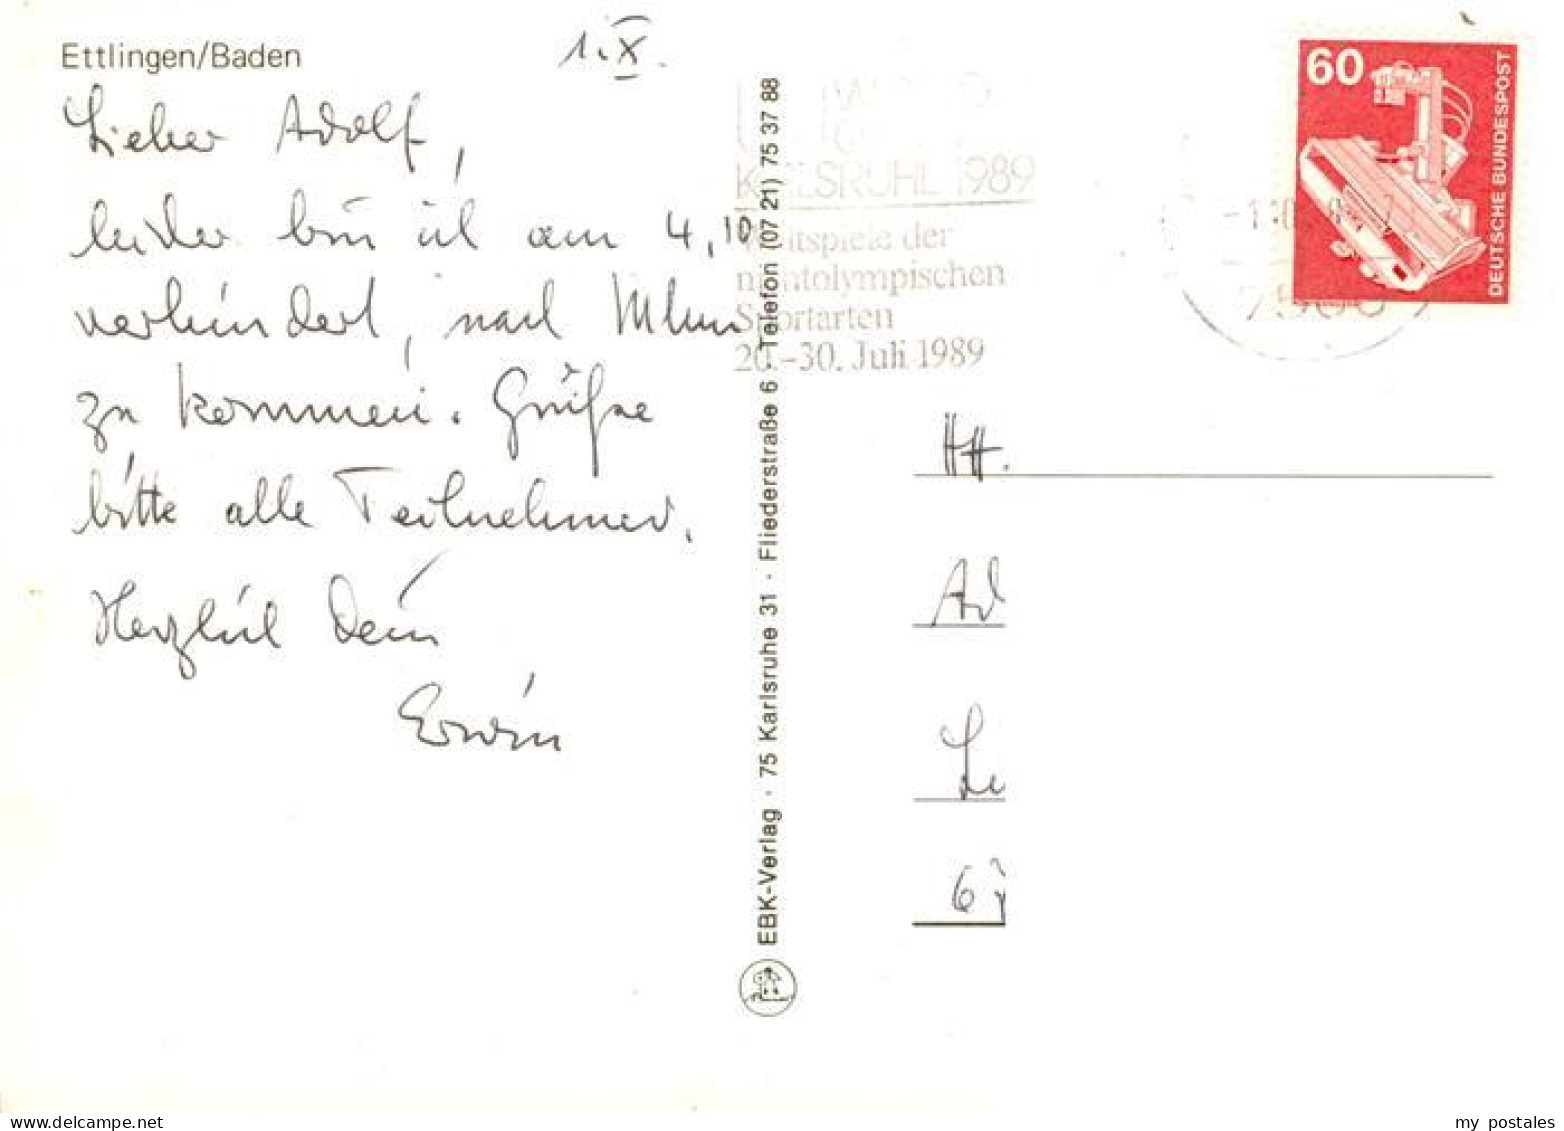 Ettlingen/Baden
1. X.
Lieber Adolf,
leider bin ich am 4,10
verhindert, nach Ulm
zu kommen. Grüße
bitte alle Teilnehmer.
Herzlich Dein
Erwin
EBK-Verlag · 75 Karlsruhe 31 · Fliederstraße 6 · Telefon (07 21) 75 37 88
KARLSRUHE 1989
Weltspiele der
nichtolympischen
Sportarten
20.-30. Juli 1989
60
DEUTSCHE BUNDESPOST
HH.
Ad
6
my postales